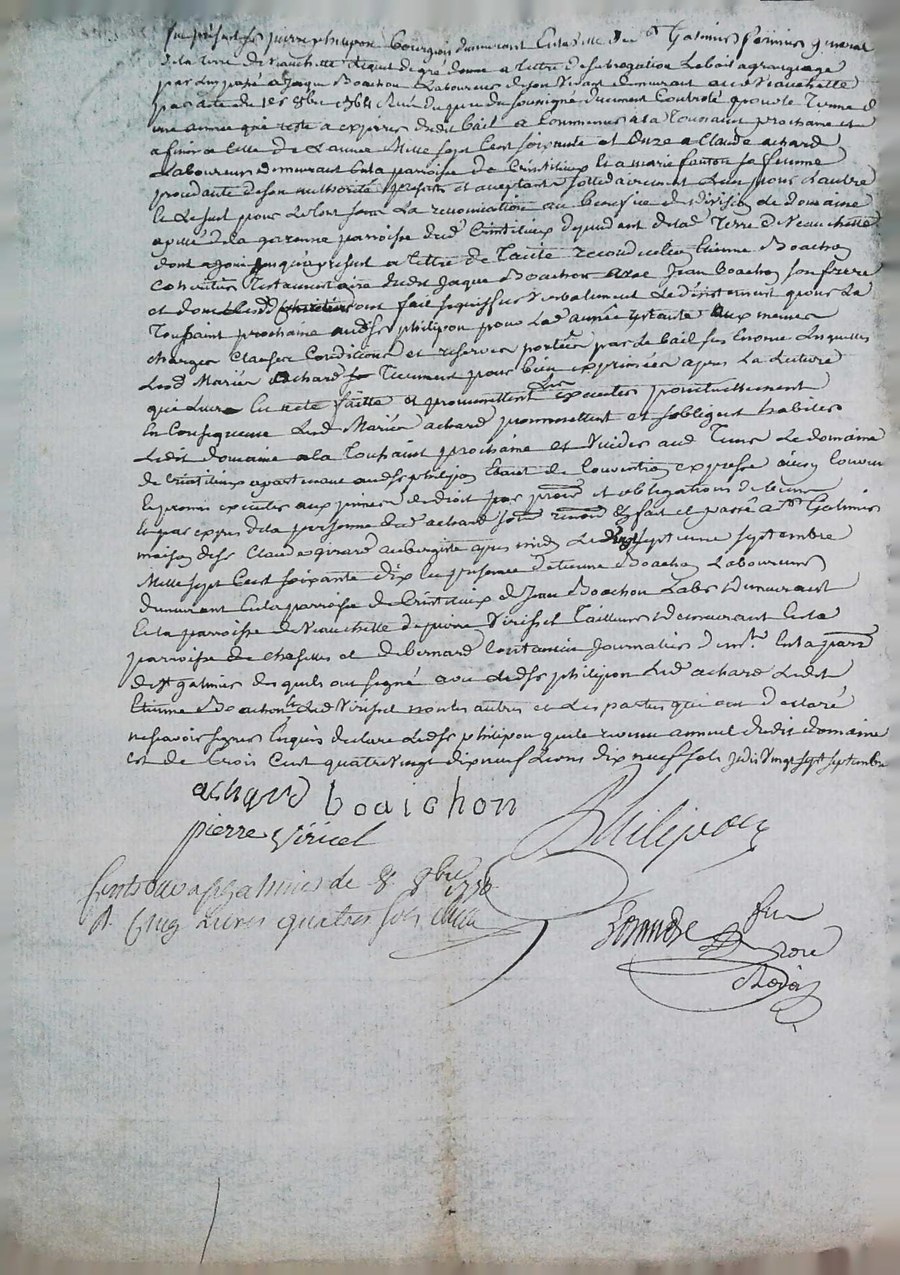 fut présent Sr pierre philipon bourgeois demeurant en la ville de St Galmier fermier general
de la terre de Veauchette lequel de gré donne a tittre de subrogation le bail a grangeage
par luy passé a Jaque Boachon Laboureur de son vivant demeurant audit Veauchette
par acte du 1er 8bre 1764 Reçu du notre soussigné duement Controlé pour le terme d
une année qui reste a expirer dudit bail a Commencer a la Toussaint prochaine et
a finir a celle de L'année Mille sept Cent soixante et onze a Claude achard
Laboureur demeurant en la paroisse de Crintilieux et a marie fanton sa femme
procedante de son authorité presents et acceptants solidairement L'un pour L'autre
le deseul pour le tout sous La renonciation au benefice de division le domaine
appellé de la garenne parroisse dud Crintilieux dependant de lad Terre de Veauchette
dont a joui jusqu'a present a tittre de Tacite reconduction Etienne Boachon
heritier Testamentaire dudit Jaque Boachon avec Jean Boachon son frere
et dont lesd ont fait verbalement Le desistement pour La
Toussaint prochaine audSr philipon pour Lad année restante aux memes
charges Clauses Conditions et reserves portées par le bail sus enoncé Lesquelles
Lesd Mariés achard tiennent pour bien exprimées apres La Lecture
que Leur en a eté faitte et promettent les executer ponctuellement
En Consequence Lesd Mariés achard promettent et sobligent habiter
Ledit domaine a la Toussaint prochaine et vuider aud Tems Le domaine
de Crintilieux apartenant audSr philipon Etant de Convention expresse ainsy Convenu
et promis executer aux peines de droit par promis et obligations de biens
et par expres de la personne dud achard soum renon &c fait et passé a St Galmier
maison deSr Claude girard aubergiste apres midy Le vingt sept septembre
Mille sept Cent soixante dix en presence d'etienne Boachon Laboureur
demeurant en la parroisse de Crintilieux de Jean Boachon Labr demeurant
En la parroisse de Veauchette de pierre Viricel Tailleur demeurant En la
parroisse de Chaselles et de bernard Constantin journalier demt en la parre
de St galmier desquels ont signé avec ledSr philipon Led achard Ledit
Etienne Boachon et led Viricel non les autres et les parties qui ont declaré
ne savoir signer Enquis declare LedSr philipon que le revenu annuel dudit domaine
est de trois Cent quatre vingt dix neuf Livres dix neuf sols jedis Vingt sept septembre
achard boaichon
pierre Viricel Philipon
Controllé a St Galmier le 8 8bre 1770
R. Cinq Livres quatre sols